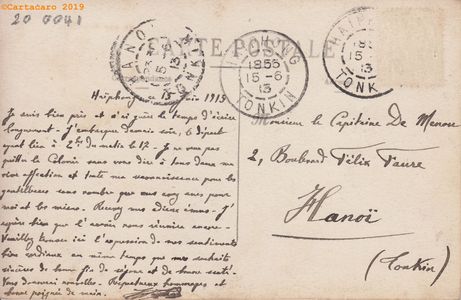 © Cartacaro 2019
20 0041
CARTE POSTALE
HANOI
TONKIN
HAIPHONG
1856
15-6
13
TONKIN
HAIPHONG
15
13
TONKIN
Haïphong juin 1913
Je suis bien pris et n'ai guère le temps d'écrire
longuement. J'embarque demain soir, le départ
ayant lieu à 2h du matin le 17. Je ne veux pas
quitter la Colonie sans vous dire à tous deux ma
vive affection et toute ma reconnaissance pour les
gentillesses sans nombre que vous avez eues pour
moi et les miens. Recevez mes adieux émus. J'
espère bien que l'avenir nous réunira encore.
Veuillez trouver ici l'expression de mes sentiments
bien cordiaux en même temps que mes souhaits
sincères de bonne fin de séjour et de bonne santé.
Vous donnerai nouvelles. Respectueux hommages et
bonne poignée de main.
Monsieur le Capitaine De Menou
2, Boulevard Félix Faure
Hanoï
(Tonkin)